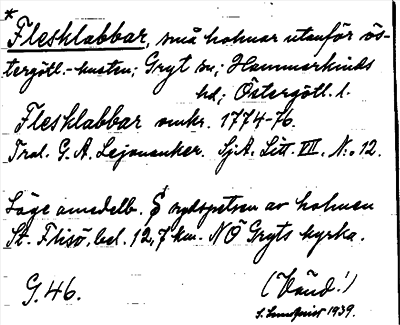 *
Flesklabbar, små holmar utanför ös-
tergötl.-kusten; Gryt sn; Hammarkinds
hd; Östergötl. l.
Flesklabbar omkr. 1774-76.
Tral. G. A. Lejonanker. SjA. Litt. VII. N:o 12.
Läge omedelb. S sydspetsen av holmen
St. Flisö, bel. 12,7 km. NÖ Gryts kyrka.
G. 46.
(Vänd!)
S. Lundqvist 1939.